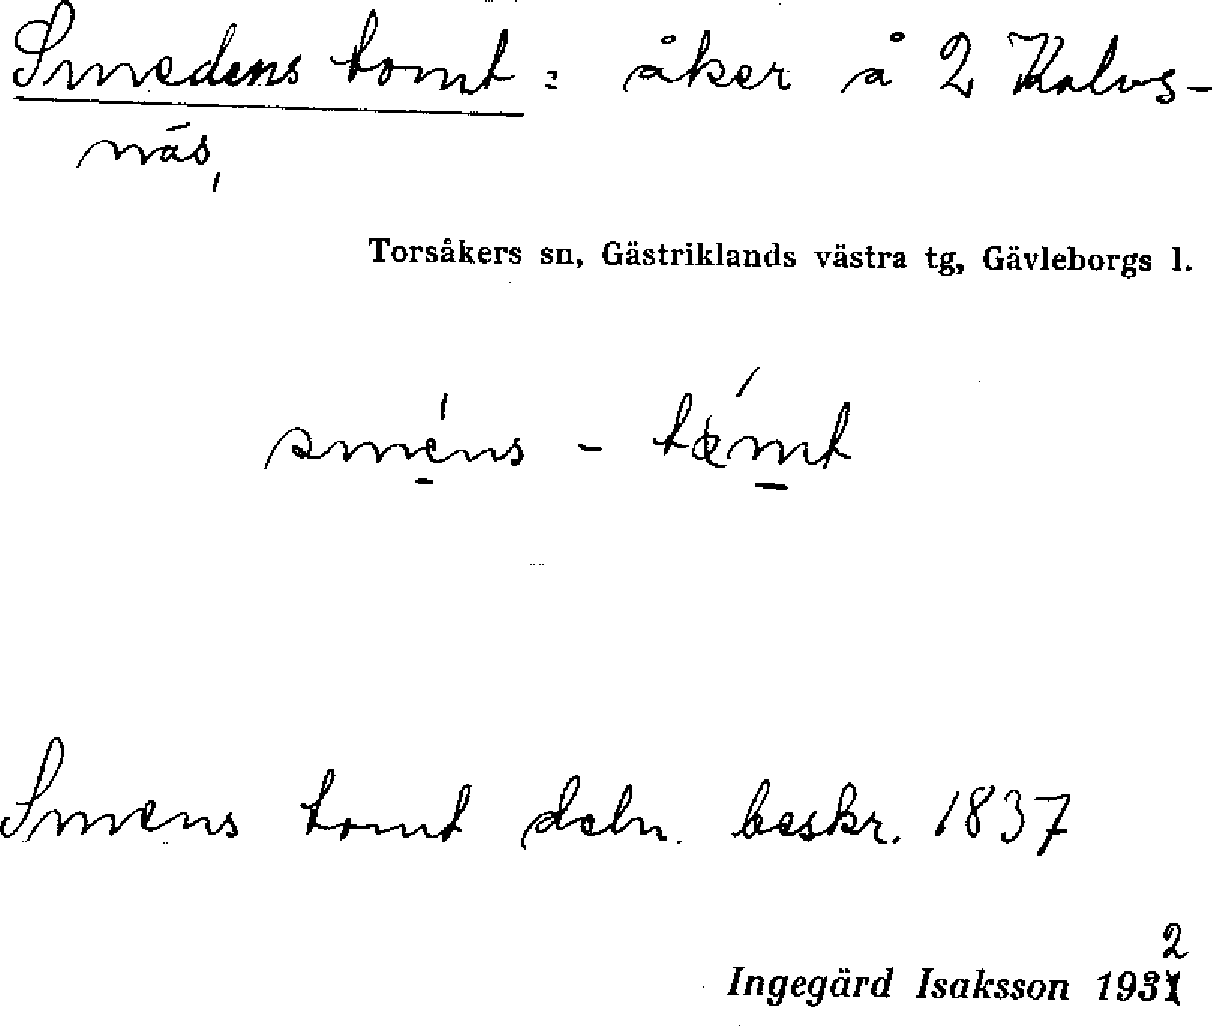 Smedens tomt : åker å 2 Kalvs-
näs,
Torsåkers sn, Gästriklands västra tg, Gävleborgs l.
sméns - tǽmt
Smens tomt deln. beskr. 1837
Ingegärd Isaksson 1932